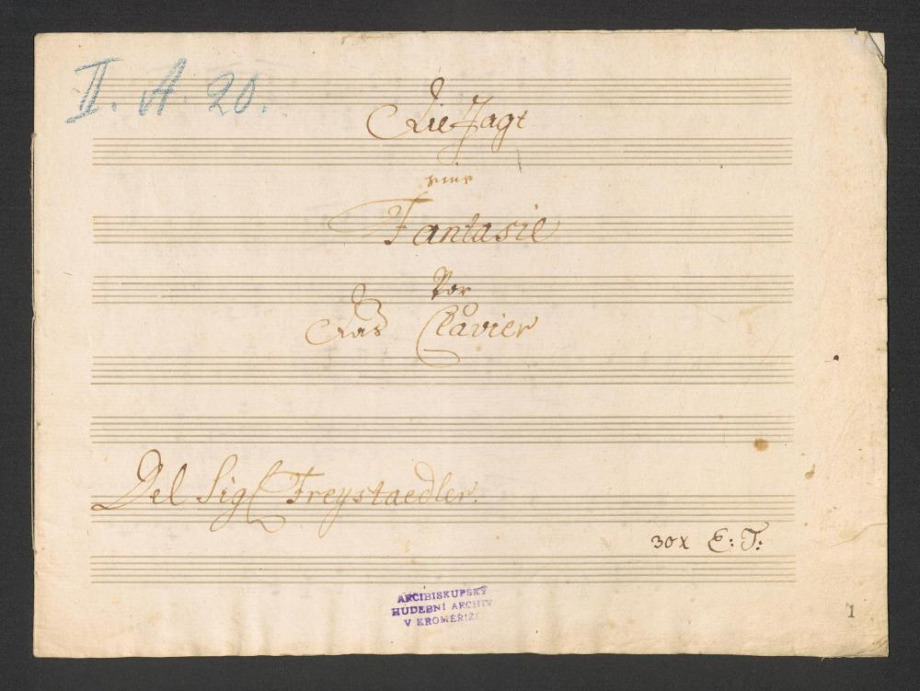 II. A. 20.
Die Jagt
eine
Fantasie
Vor
Das Clavier
Del Sig Freystaedler.
30x E: T:
ARCIBISKUPSKÝ
HUDEBNÍ ARCHIV
V KROMĚŘÍŽI
1